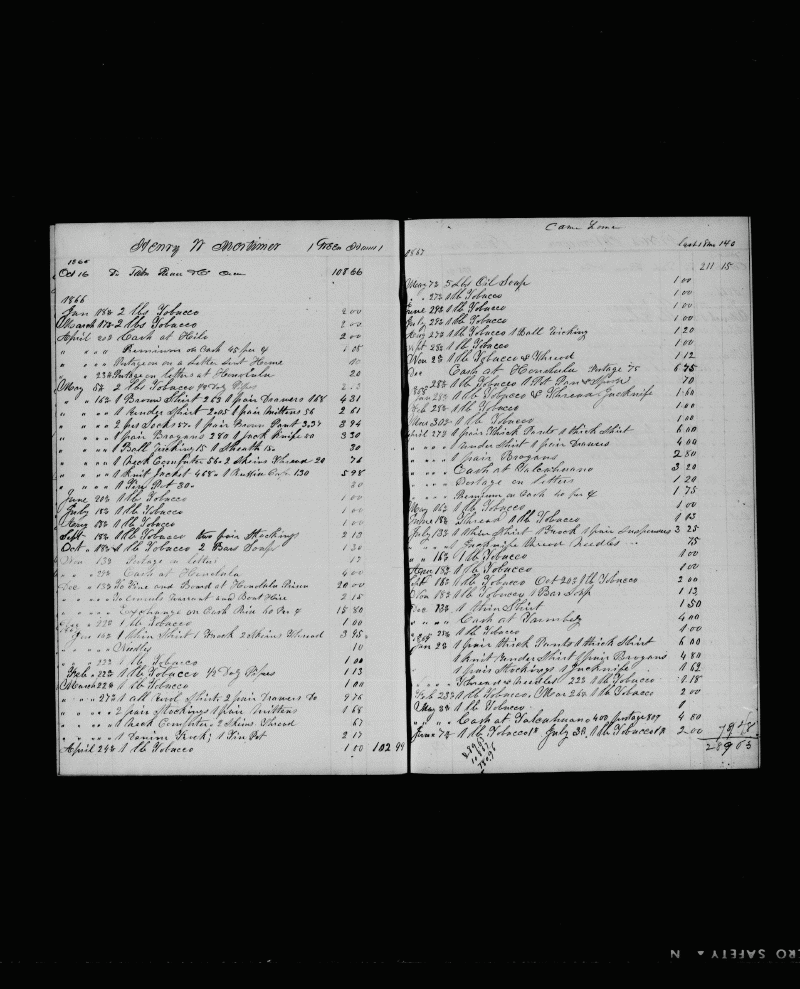 Henry W Mortimer (Green Hand)
1865
Oct 16 To 108 66
1866
Jan 18th 2 lbs Tobacco 2 00
March 17th 2 lbs Tobacco 2 00
April 20th Cash at Hilo 2 00
" " " Premium on Cash 45 per %
" " " Postage on a Letter Sent Home 10
" " 23th Postage on letters at Honolulu 20
May 5th 2 lb Tobacco ½ Doz Pipes
" " 16th 1 Brown Shirt 263 1 pair Drawers 168 4 31
" " " 1 Under Shirt 2.05 1 pair Mittens 56 2 61
" " " 2 prs Sock 1 pair Brown Pant 3.37 3 94
" " " 1 pair Brogans 280 1 Jack Knife 50 3 30
" " " 1 Belt 15 1 Sheath 15 30
" " " 1 Neck Comforter 56 2 Skeins Thread 20 76
" " " 1 Knit Jacket 468 1 Cap 130 5 98
" " " 1 Tin Pot 30 30
June 20th 1 lb Tobacco 1 00
July 18th 1 lb Tobacco 1 00
Aug 18th 1 lb Tobacco 1 00
Sept 18th 1 lb Tobacco two pair Stockings 2 13
Oct 1 lb Tobacco 2 Bars Soap 1 30
13th Postage on letters 17
" " Cash at Honolulu 4 00
Dec 13th To Fine and Board at Honolulu Prison 20 00
" " " To Warrant and Boat Hire 2 15
" " " Exchange on Cash 60 Per % 15 80
22th 1 lb Tobacco 1 00
Jan 14th 1 thin Shirt 1 Frock 2 Skeins Thread 3 95
" " " Needles 10
" " 22th 1 lb Tobacco 1 00
Feb 22th 1 lb Tobacco ½ Doz Pipes 1 13
March 22th 1 lb Tobacco 1 00
" " 27th 1 Shirt 2 pair Drawers 9 76
" " " 2 pair Stockings 1 pair Mittens 1 68
" " " 1 Neck Comforter 2 Skeins Thread 67
" " " 1 Denim Frock, 1 Tin Pot 2 17
April 24th 1 lb Tobacco 1 00 102 49
Came Home
1867
211 15
May 7th 5 lbs Oil Soap 1 00
" " 27th 1 lb Tobacco 1 00
June 29th 1 lb Tobacco 1 00
July 29th 1 lb Tobacco 1 00
Aug 27th 1 lb Tobacco 1 Ball Wicking 1 20
Sept 28th 1 lb Tobacco 1 00
Nov 2th 1 lb Tobacco & Thread 1 12
Dec Cash at Honolulu Postage 75 6 75
1 lb Tobacco 1 Pot Pan & Spoon 70
Jan 28th 1 lb Tobacco & Thread Jackknife 1 60
Feb 28th 1 lb Tobacco 1 00
Mar 30th 1 lb Tobacco 1 00
April 27th 1 pair Thick Pants 1 thick Shirt 6 00
" " " 1 Under Shirt 1 pair Drawers 4 00
" " " 1 pair Brogans 2 80
" " " Cash at Talcahuano 3 20
" " " Postage on Letters 1 20
" " " Premium on Cash 40 per % 1 75
May 16th 1 lb Tobacco 1 00
June 18th Thread 1 lb Tobacco 1 13
July 13th 1 thin Shirt 1 Frock 1 pair Suspenders 3 25
" " " 1 Jackknife thread needles 75
" " 16th 1 lb Tobacco 1 00
Aug 18th 1 lb Tobacco 1 00
Sept 16th 1 lb Tobacco Oct 20th 1 lb Tobacco 2 00
Nov 18th 1 lb Tobacco 1 Bar Soap 1 13
Dec 12th 1 thin Shirt 1 50
" " " Cash at Tumbez 4 00
" " 28th 1 lb Tobacco 1 00
Jan 2th 1 pair thick Pants 1 thick Shirt 6 00
1 Knit Under Shirt 1 pair Brogans 4 80
1 pair Stockings 1 Jackknife 1 62
" " " Thread & Needles 22th 1 lb Tobacco 1 18
Feb 23th 1 lb Tobacco, Mar 26th 1 lb Tobacco 2 00
May 3th 1 lb Tobacco
" " " Cash at Talcahuano 400 postage 80 4 80
June 7th 1 lb Tobacco July 3th 1 lb Tobacco 2 00 78 48
289 63
SAFETY
N